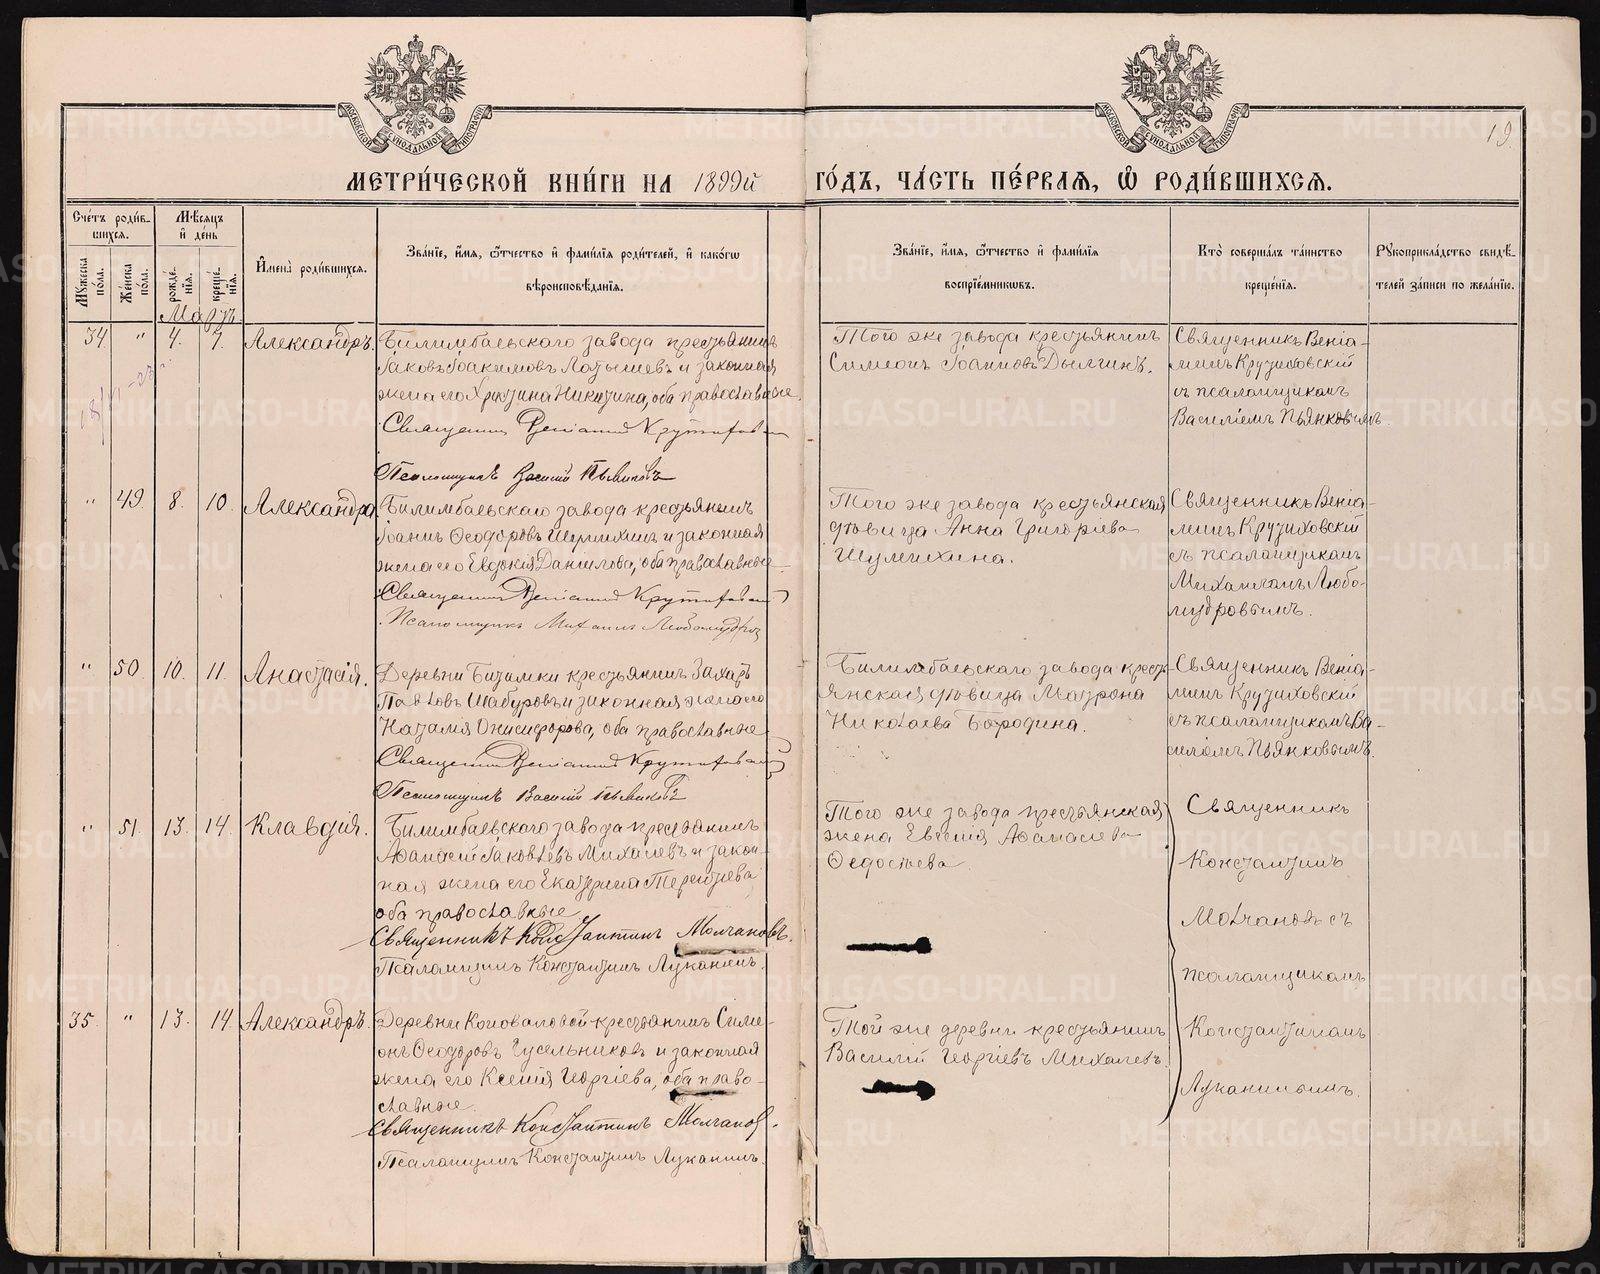 МОСКОВСКОЙ СѴНОДАЛЬНОЙ ТИПОГРАФІИ
МОСКОВСКОЙ СѴНОДАЛЬНОЙ ТИПОГРАФІИ
19
МЕТРИ́ЧЕСКОЙ КНИ́ГИ НА 1899й ГО́ДЪ, ЧА́СТЬ ПЕ́РВАЯ, Ѽ РОДИ́ВШИХСЯ.
Сче́тъ роди́в-
шихся.
Му́жеска по́ла.
Же́нска по́ла.
Мѣ́сяцъ и҆ де́нь
рожде́нїя.
креще́нїя.
И҆мена̀ роди́вшихся.
Зва́нїе, и҆́мя, ѻ҆́тчество и҆ фами́лїя роди́телей, и҆ како́гѡ
вѣроисповѣ́данїя.
Зва́нїе, и҆́мя, ѻ҆́тчество и҆ фами́лїя
воспрїе́мниковъ.
Кто̀ соверша́лъ та́инство
креще́нїя.
Рꙋкоприкла́дство свидѣ́-
телей за́писи по жела́нїю.
Мартъ.
34 " 4. 7. Александръ.
Билимбаевскаго завода крестьянинъ
Іаковъ Іоакимовъ Латышевъ и законная
жена его Христина Никитина, оба православные.
Священникъ Веніаминъ Крутиховскій
Псаломщикъ Василій Пьянковъ
Того же завода крестьянинъ
Симеонъ Іоанновъ Дылдинъ.
Священникъ Веніа-
минъ Крутиховскій
съ псаломщикомъ
Василіемъ Пьянковымъ.
" 49. 8. 10. Александра
Билимбаевскаго завода крестьянинъ
Іоаннъ Ѳеодоровъ Шумихинъ и законная
жена его Евдокія Даніилова, оба православные
Священникъ Веніаминъ Крутиховскій
Псаломщикъ Михаилъ Любомудровъ
Того же завода крестьянская
дѣвица Анна Григоріева
Шумихина.
Священникъ Веніа-
минъ Крутиховскій
съ псаломщикомъ
Михаиломъ Любо-
мудровымъ.
" 50. 10. 11. Анастасія.
Деревни Битимки крестьянинъ Захаръ
Павловъ Шабуровъ и законная жена его
Наталія Онисифорова, оба православные
Священникъ Веніаминъ Крутиховскій
Псаломщикъ Василій Пьянковъ
Билимбаевскаго завода кресть-
янская дѣвица Матрона
Николаева Бородина.
Священникъ Веніа-
минъ Крутиховскій
съ псаломщикомъ Ва-
силіемъ Пьянковымъ.
" 51. 13. 14. Клавдія.
Билимбаевскаго завода крестьянинъ
Аѳанасій Іаковлевъ Михалевъ и закон-
ная жена его Екатерина Терентьева
оба православные
Священникъ Константинъ Молчановъ.
Псаломщикъ Константинъ Луканинъ.
Того же завода крестьянская
жена Евгенія Аѳанасіева
Ѳедосѣева
Священникъ
Константинъ
Молчановъ съ
псаломщикомъ
Константиномъ
Луканинымъ.
35. " 13. 14. Александръ.
Деревни Коноваловой крестьянинъ Симе-
онъ Ѳеодоровъ Гусельниковъ и законная
жена его Ксенія Георгіева, оба право-
славные.
Священникъ Константинъ Молчановъ.
Псаломщикъ Константинъ Луканинъ.
Той же деревни крестьянинъ
Василій Георгіевъ Михалевъ.
METRIKI.GASO-URAL.RU